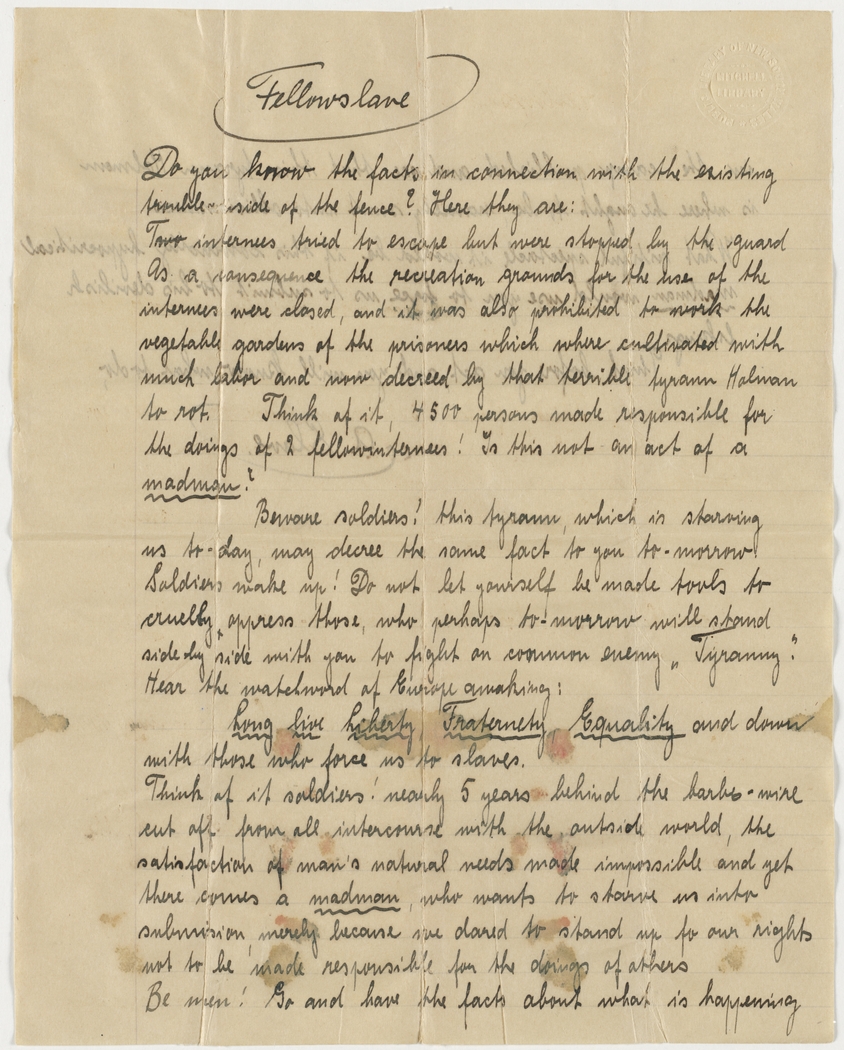 Fellowslave
Do you know the facts in connection with the existing
trouble- side of the fence? Here they are:
Two internees tried to escape but were stopped by the guard
As a consequence the recreation grounds for the use of the
internees were closed, and it was also prohibited to work the
vegetable gardens of the prisoners which where cultivated with
much labor and now decreed by that terrible tyrann Holman
to rot. Think of it, 4500 persons made responsible for
the doings of 2 fellowinternees! Is this not an act of a
madman?
Beware soldiers! this tyrann, which is starving
us to-day, may decree the same fact to you to-morrow.
Soldiers wake up! Do not let yourself be made tools to
cruelly oppress those, who perhaps to-morrow will stand
side-by side with you to fight on common enemy „Tyranny".
Hear the watchword of Europe awaking:
Long live Liberty, Fraternety, Equality and down
with those who force us to slaves.
Think of it soldiers! nearly 5 years behind the barbe-wire
cut off from all intercourse with the outside world, the
satisfaction of man's natural needs made impossible and yet
there comes a madman, who wants to starve us into
submission, merely because we dared to stand up fo our rights
not to be made responsible for the doings of others
Be men! Go and have the facts about what is happening